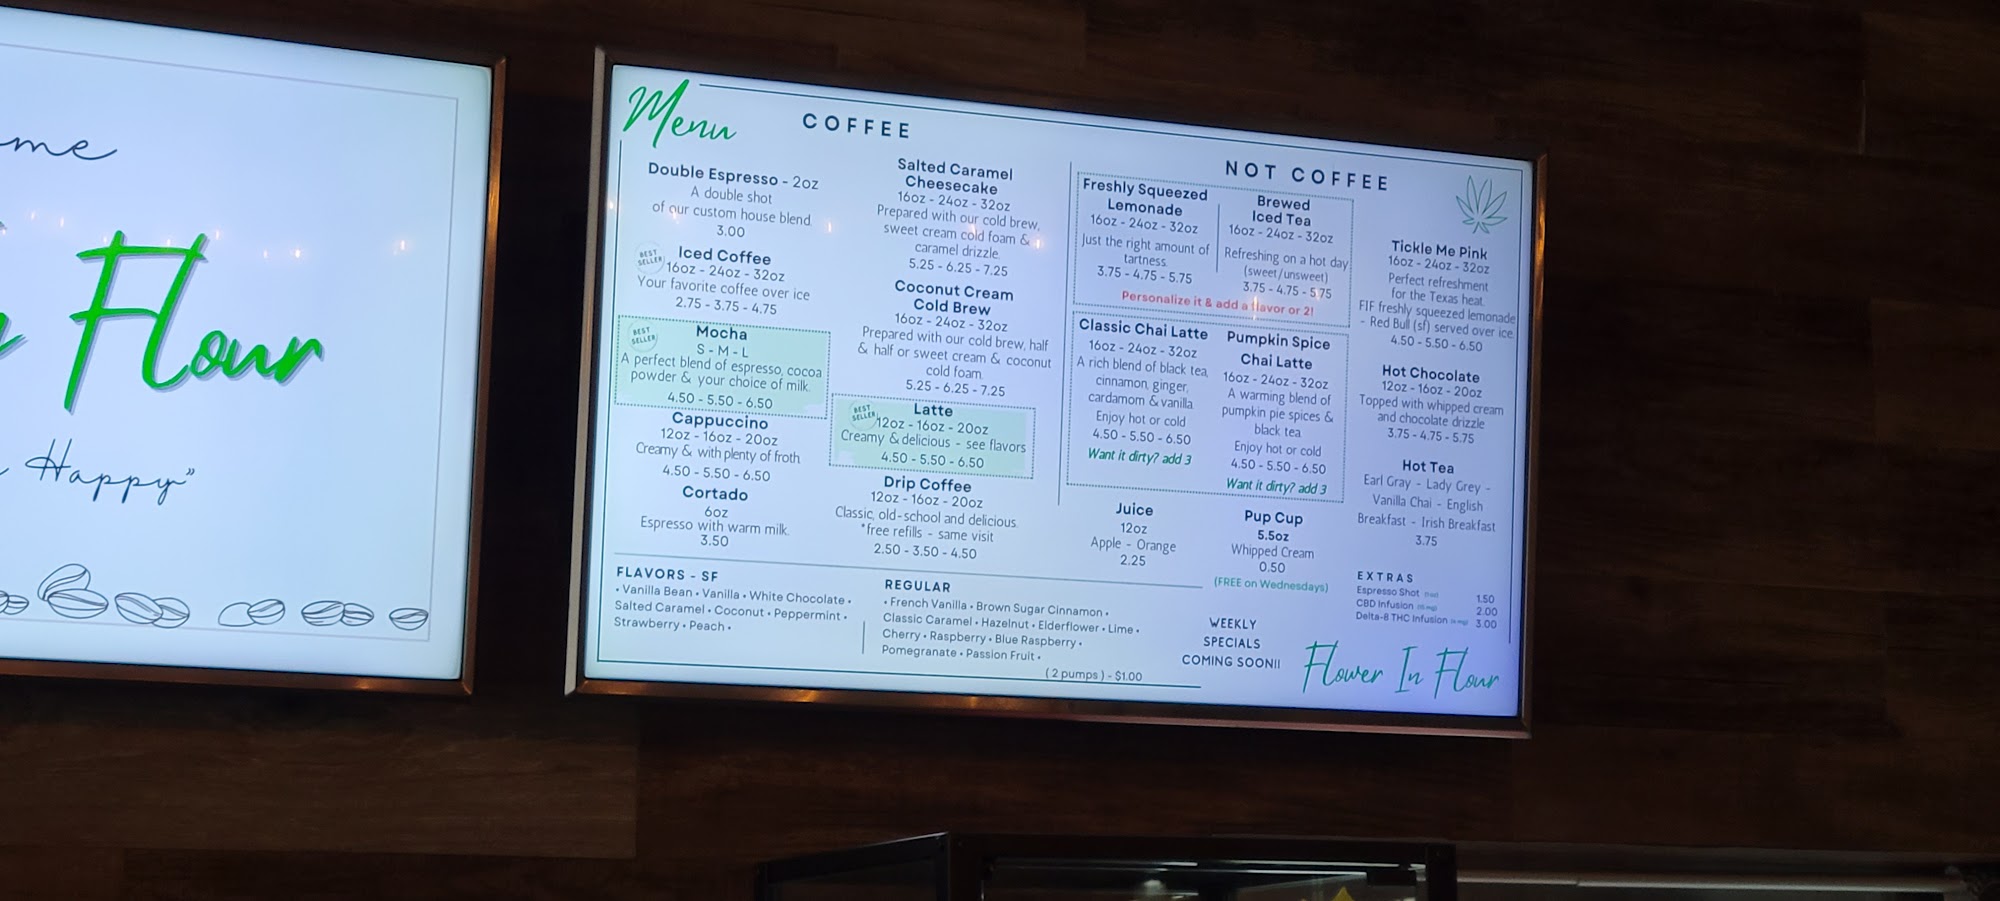 me
Flour
Happy"
Menu
COFFEE
Double Espresso - 2oz
A double shot
of our custom house blend.
3.00
BEST
SELLER
Iced Coffee
16oz - 24oz - 32oz
Your favorite coffee over ice
2.75 - 3.75 - 4.75
BEST
SELLER
Mocha
S - M - L
A perfect blend of espresso, cocoa
powder & your choice of milk.
4.50 - 5.50 - 6.50
Cappuccino
12oz - 16oz - 20oz
Creamy & with plenty of froth.
4.50 - 5.50 - 6.50
Cortado
6oz
Espresso with warm milk.
3.50
Salted Caramel
Cheesecake
16oz - 24oz - 32oz
Prepared with our cold brew,
sweet cream cold foam &
caramel drizzle.
5.25 - 6.25 - 7.25
Coconut Cream
Cold Brew
16oz - 24oz - 32oz
Prepared with our cold brew, half
& half or sweet cream & coconut
cold foam.
5.25 - 6.25 - 7.25
BEST
SELLER
Latte
12oz - 16oz - 20oz
Creamy & delicious - see flavors
4.50 - 5.50 - 6.50
Drip Coffee
12oz - 16oz - 20oz
Classic, old-school and delicious.
*free refills - same visit
2.50 - 3.50 - 4.50
NOT COFFEE
Freshly Squeezed
Lemonade
16oz - 24oz - 32oz
Just the right amount of
tartness.
3.75 - 4.75 - 5.75
Brewed
Iced Tea
16oz - 24oz - 32oz
Refreshing on a hot day
(sweet/unsweet)
3.75 - 4.75 - 5.75
Personalize it & add a flavor or 2!
Classic Chai Latte
16oz - 24oz - 32oz
A rich blend of black tea,
cinnamon, ginger,
cardamom & vanilla
Enjoy hot or cold
4.50 - 5.50 - 6.50
Want it dirty? add 3
Pumpkin Spice
Chai Latte
16oz - 24oz - 32oz
A warming blend of
pumpkin pie spices &
black tea.
Enjoy hot or cold
4.50 - 5.50 - 6.50
Want it dirty? add 3
Juice
12oz
Apple - Orange
2.25
Pup Cup
5.5oz
Whipped Cream
0.50
(FREE on Wednesdays)
Tickle Me Pink
16oz - 24oz - 32oz
Perfect refreshment
for the Texas heat.
FIF freshly squeezed lemonade
- Red Bull (sf) served over ice
4.50 - 5.50 - 6.50
Hot Chocolate
12oz - 16oz - 20oz
Topped with whipped cream
and chocolate drizzle
3.75 - 4.75 - 5.75
Hot Tea
Earl Gray - Lady Grey -
Vanilla Chai - English
Breakfast - Irish Breakfast
3.75
EXTRAS
Espresso Shot 1.50
CBD Infusion 2.00
Delta-8 THC Infusion 3.00
FLAVORS - SF
• Vanilla Bean • Vanilla • White Chocolate •
Salted Caramel • Coconut • Peppermint •
Strawberry • Peach •
REGULAR
• French Vanilla • Brown Sugar Cinnamon •
Classic Caramel • Hazelnut • Elderflower • Lime •
Cherry • Raspberry • Blue Raspberry •
Pomegranate • Passion Fruit •
( 2 pumps ) - $1.00
WEEKLY
SPECIALS
COMING SOON!!
Flower In Flour